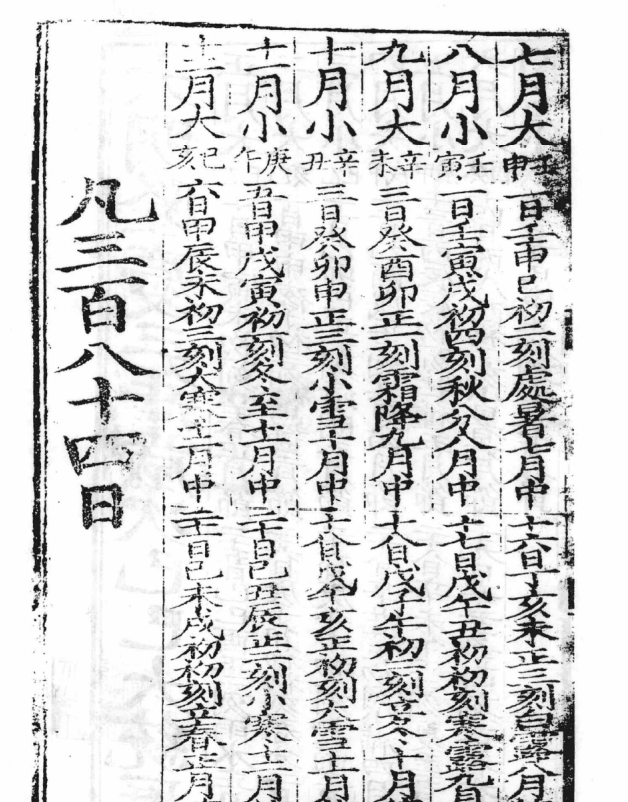 七月大壬申一日壬申巳初二刻處暑七月中十六日丁亥未正三刻白露八月
八月小壬寅一日壬寅戌初四刻秋分八月中十七日戊午丑初初刻寒露九月
九月大辛未三日癸酉卯正一刻霜降九月中十八日戊子午初二刻立冬十月
十月小辛丑三日癸卯申正三刻小雪十月中十八日戊午亥正初刻大雪十一月
十一月小庚午五日甲戌寅初一刻冬至十一月中二十日己丑辰正三刻小寒十二月
十二月大己亥六日甲辰未初三刻大寒十二月中二十一日己未戌初初刻立春正月
凡三百八十四日